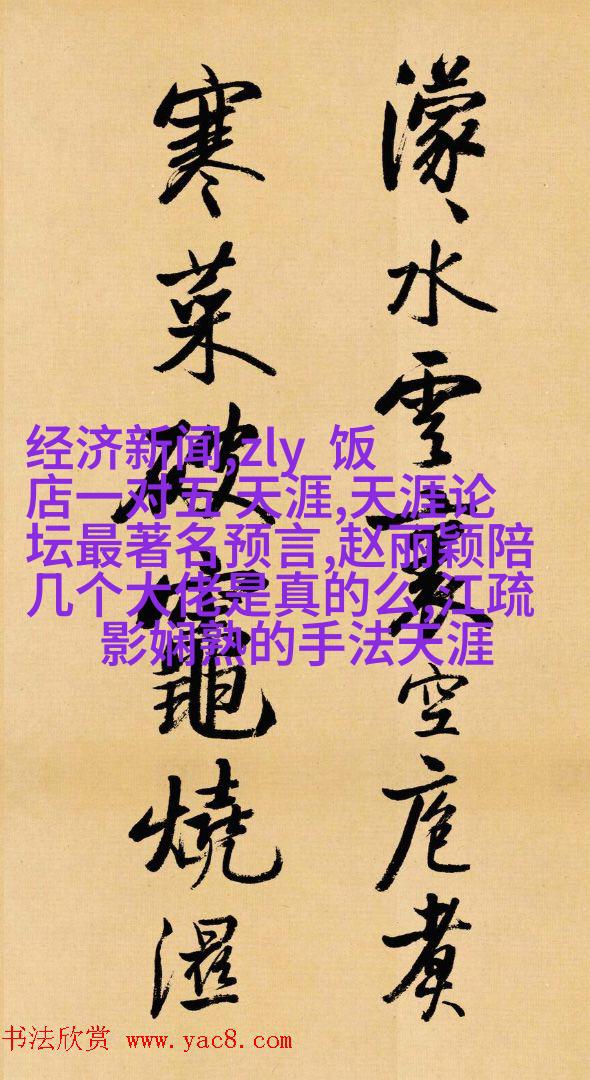 濛〻水雲裏空庖煮
寒菜破竈燒濕
经济新闻,zly 饭
店一对五 天涯,天涯论
坛最著名预言,赵丽颖陪
几个大佬是真的么,江疏
影娴熟的手法天涯
书法欣赏 www.yac8.com